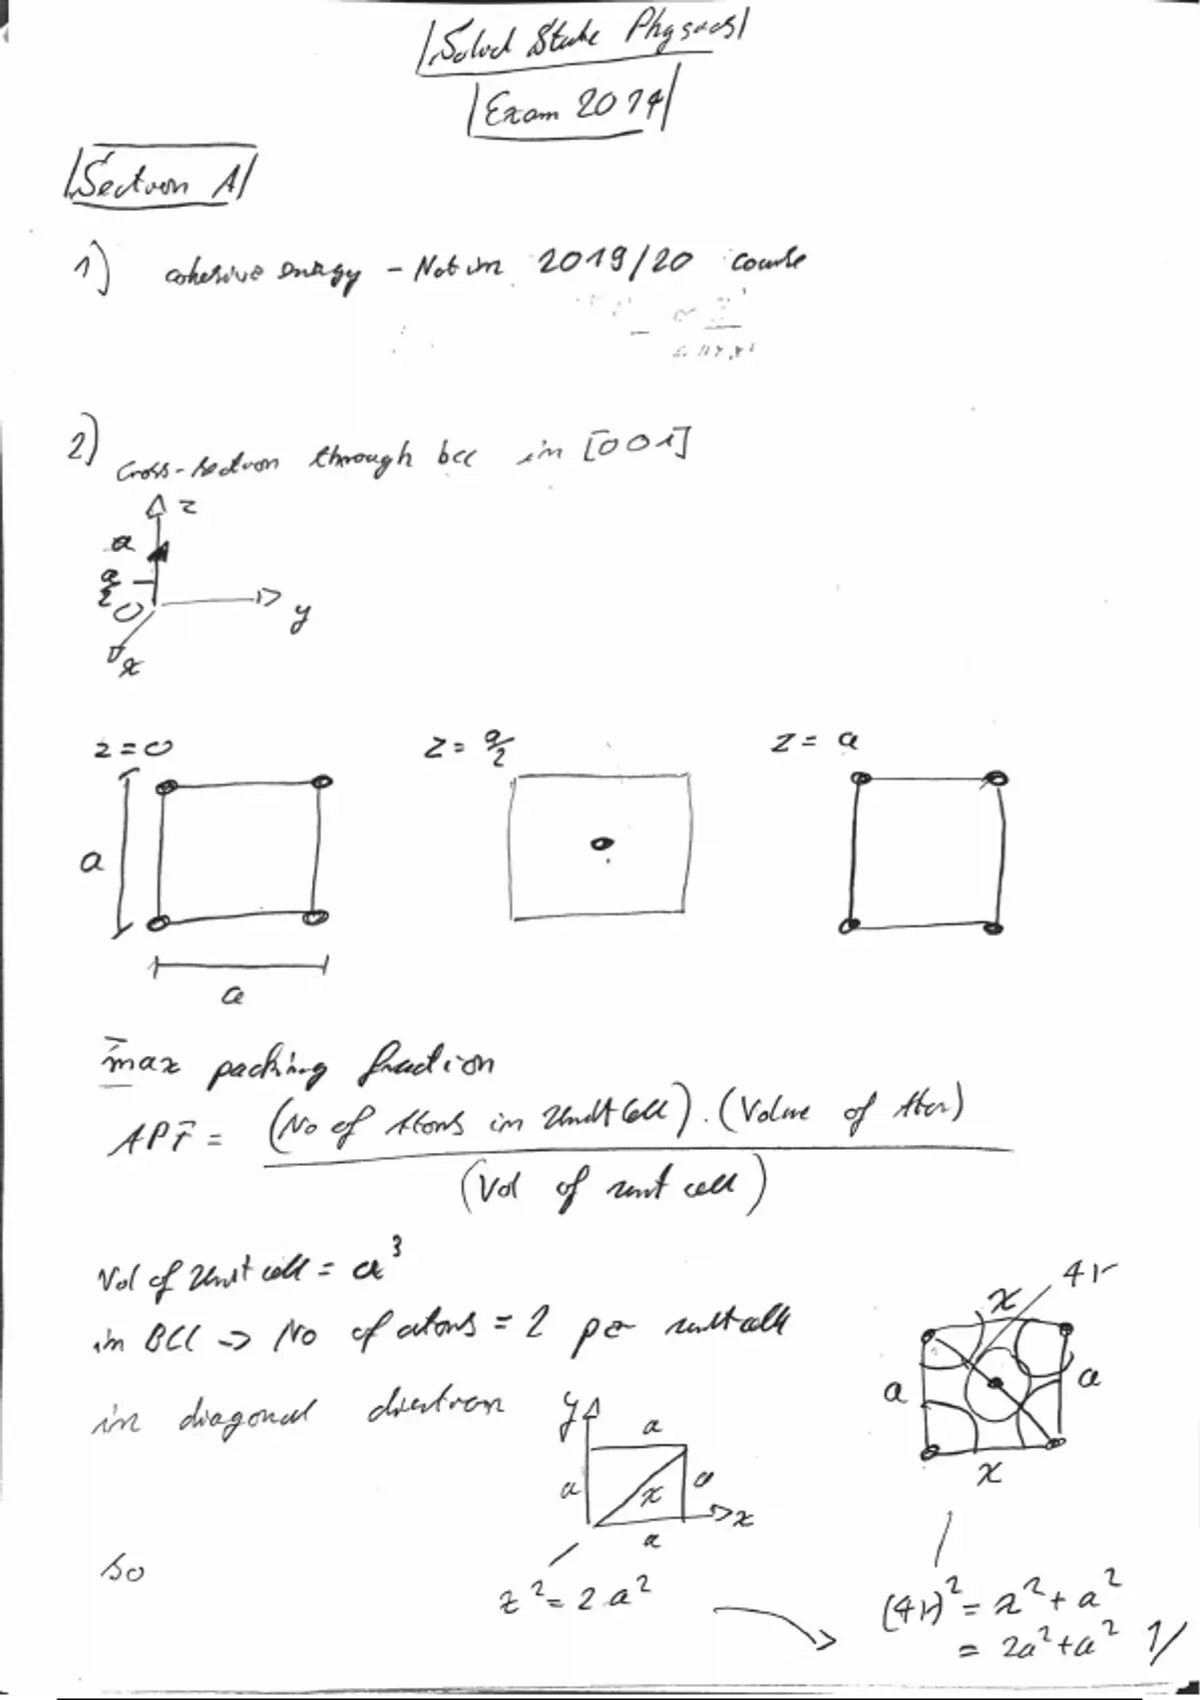 Solid State Physics
Exam 2014
Section A
1) cohesive energy - Not in 2019/20 course
2) Cross-section through bcc in [001]
z
a
a/2
0
y
x
z = 0
z = a/2
z = a
a
a
max packing fraction
APF = (No of Atoms in Unit Cell) · (Volume of Atom)
(Vol of unit cell)
Vol of Unit cell = a³
in BCC => No of atoms = 2 per unit cell
4r
x
a
a
x
in diagonal direction
y
a
a
x
a
x
a
so
x² = 2a²
(4r)² = x² + a²
= 2a² + a²
1/